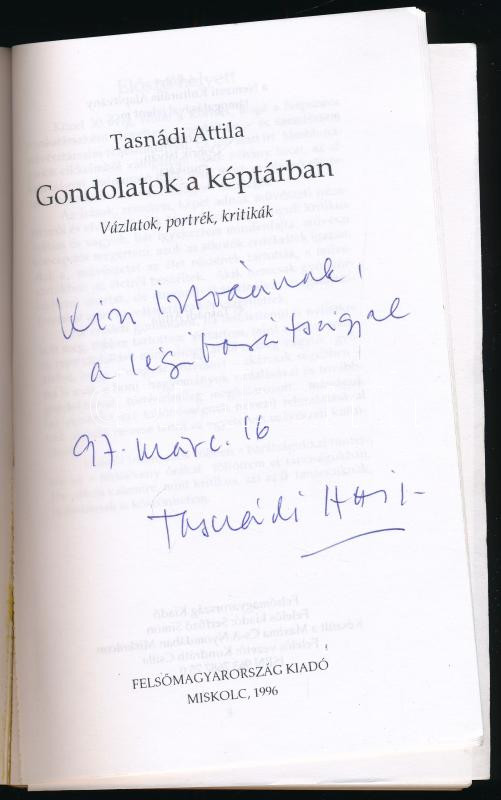 Tasnádi Attila
Gondolatok a képtárban
Vázlatok, portrék, kritikák
Kiss Istvánnak,
a régi barátsággal
97. márc. 16
Tasnádi Atti
FELSŐMAGYARORSZÁG KIADÓ
MISKOLC, 1996